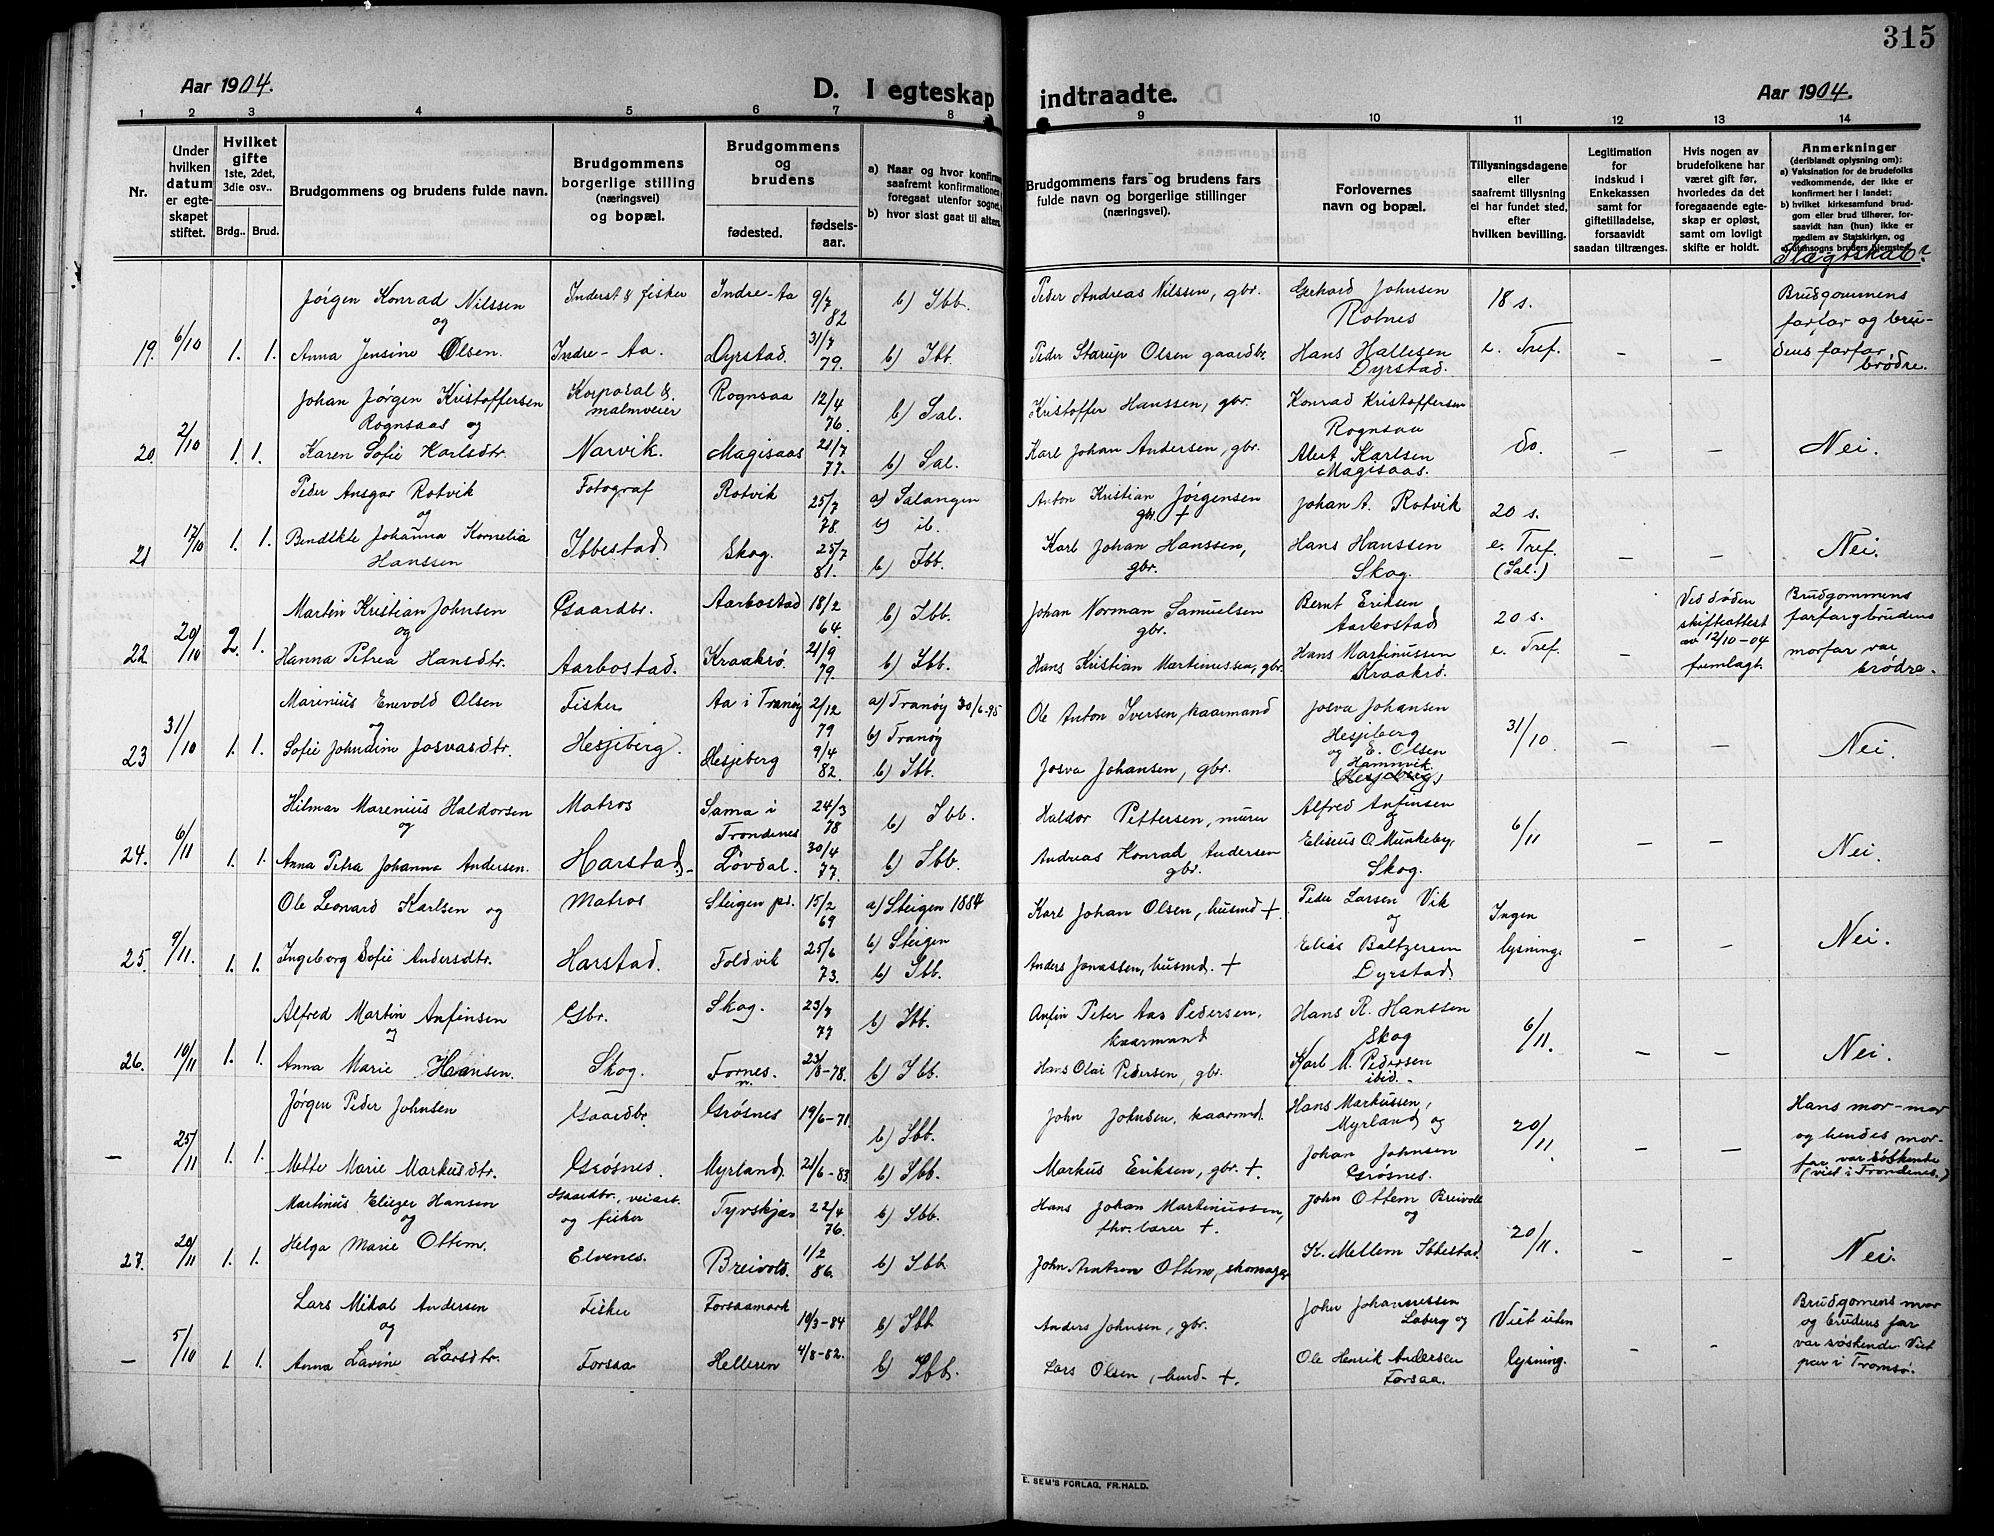 315
Aar 1904.
D. I egteskap indtraadte.
Aar 1904.
1 2 3 4 5 6 7 8 9 10 11 12 13 14
Nr.
Under hvilken datum er egteskapet stiftet.
Hvilket gifte
1ste, 2det, 3die osv..
Brdg.. Brud.
Brudgommens og brudens fulde navn.
Brudgommens borgerlige stilling (næringsvei) og bopæl.
Brudgommens og brudens
fødested.
fødselsaar.
a) Naar og hvor konfirm
saafremt konfirmationen
foregaat utenfor sognet,
b) hvor sidst gaat til alters.
Brudgommens fars og brudens fars
fulde navn og borgerlige stillinger
(næringsvei).
Forlovernes
navn og bopæl.
Tillysningsdagene
eller
saafremt tillysning
ei har fundet sted,
efter
hvilken bevilling.
Legitimation
for
indskud i
Enkekassen
samt for
giftetilladelse,
forsaavidt
saadan tiltrænges.
Hvis nogen av
brudefolkene har
været gift før,
hvorledes da det
foregaaende egte-
skap er opløst,
samt om lovligt
skifte er holdt.
Anmerkninger
(deriblandt oplysning om):
a) Vaksination for de brudefolks
vedkommende, der ikke er
konfirmert her i landet;
b) hvilket kirkesamfund brud-
gom eller brud tilhører, for-
saavidt han (hun) ikke er
medlem av Statskirken, og
Slægtskab?
19. 6/10 1. 1.
Jørgen Konrad Nilssen
og
Anna Jensine Olsen.
Inderst & fisker
Indre-Aa.
Indre-Aa 9/7 82
Dyrstad. 31/7 79.
b) Ibb.
b) Ibb.
Peder Andreas Nilssen, gbr.
Peder Starup Olsen gaardbr.
Gerhard Johnsen
Rotnes
Hans Hallesen
Dyrstad.
18 s.
e. Tref.
–
–
Brudgommens
farfar og bru-
dens farfar
brødre.
20. 2/10 1. 1.
Johan Jørgen Kristoffersen
Rognsaas og
Karen Sofie Karlsdtr.
Korporal &
malmveier
Narvik.
Rognsaa 12/4 76.
Magisaas 21/7 77.
b) Sal.
b) Sal.
Kristoffer Hanssen, gbr.
Karl Johan Andersen, gbr.
Konrad Kristoffersen
Rognsaa
Alert Karlsen
Magisaas.
do.
–
–
Nei.
21 17/10 1. 1.
Peder Ansgar Rotvik
og
Bendikte Johanna Kornelia
Hanssen
Fotograf
Ibbestad
Rotvik 25/7 78.
Skog. 25/7 81.
a) Salangen
b) ib.
b) Ibb.
Anton Kristian Jørgensen
gbr. +
Karl Johan Hanssen,
gbr.
Johan A. Rotvik
Hans Hanssen
Skog.
20 s.
e. Tref.
(Sal.)
–
–
Nei.
22 20/10 2. 1.
Martin Kristian Johnsen
og
Hanna Petrea Hansdtr.
Gaardbr.
Aarbostad.
Aarbostad 18/2 64.
Kraakrø. 21/9 79.
b) Ibb.
b) Ibb.
Johan Norman Samuelsen
gbr.
Hans Kristian Martinussen, gbr.
Bernt Eriksen
Aarbostad
Hans Martinussen
Kraakrø.
20 s.
e. Tref.
–
Ved døden
skifteattest
av 12/10-04
fremlagt.
Brudgommens
farfar og brudens
morfar var
brødre.
23 31/10 1. 1.
Marinius Enevold Olsen
og
Sofie Johndine Josvasdtr.
Fisker
Hesjeberg.
Aa i Tranøy 2/12 79
Hesjeberg 9/4 82.
a) Tranøy 30/6-95
b) Tranøy
b) Ibb.
Ole Anton Iversen, kaarmand
Josva Johansen, gbr.
Josva Johansen
Hesjeberg
og E. Olsen
Hamnvik.
31/10
–
–
Nei.
24. 6/11 1. 1.
Hilmar Marenius Haldorsen
og
Anna Petra Johanna Andersen.
Matros
Harstad.
Sama i
Trondenes 24/3 78
Løvdal. 30/4 77.
b) Ibb.
b) Ibb.
Haldor Pettersen, murer
Andreas Konrad Andersen
gbr.
Alfred Anfinsen
og
Eliseus O. Munkeby,
Skog.
6/11
–
–
Nei.
25. 9/11. 1. 1.
Ole Leonard Karlsen og
Ingeborg Sofie Andersdtr.
Matros
Harstad.
Steigen pd. 15/2 69
Foldvik 25/6 73.
a) Steigen 1884
b) Steigen
b) Ibb.
Karl Johan Olsen, husmd +
Anders Jonassen, husmd. +
Peder Larsen Vik
og
Elias Baltzersen
Dyrstad
Ingen
lysning.
–
–
Nei.
26. 10/11 1. 1.
Alfred Martin Anfinsen
og
Anna Marie Hansen.
Gbr.
Skog.
Skog. 23/7 77
Fornes. 23/8-78.
b) Ibb.
b) Ibb.
Anfin Peter Aas Pedersen,
kaarmand
Hans Olai Pedersen, gbr.
Hans R. Hanssen
Skog
Karl M. Pedersen
ibid.
6/11.
–
–
Nei.
– 25/11 1. 1.
Jørgen Peder Johnsen
Mette Marie Markusdtr.
Gaardbr.
Grøsnes.
Grøsnes 19/6-71.
Myrland. 21/6-83
b) Ibb.
b) Ibb.
John Johnsen, kaarmd.
Markus Eriksen, gbr. +
Hans Markussen,
Myrland og
Johan Johnsen
Grøsnes.
20/11.
–
–
Hans mor-mor
og hendes mor-
far var søskende
(viet i Trondenes.)
27. 20/11 1. 1.
Martinus Eliezer Hansen
og
Helga Marie Ottem.
Gaardbr., veiarb.
og fisker
Elvenes.
Tyvskjær 22/4 76.
Breivold. 1/2 86.
b) Ibb.
b) Ibb.
Hans Johan Martinussen,
fhv. lærer +.
John Arntsen Ottem, skomager
John Ottem Breivold
og
K. Mellem Ibbestad
20/11.
–
–
Nei.
– 5/10 1. 1.
Lars Mikal Andersen
og
Anna Lavine Larsdtr.
Fisker
Forsaa
Forsaamark 19/3-84
Helleren 4/8-82.
b) Ibb
b) Ibb.
Anders Johnsen, gbr.
Lars Olsen, husmd. +.
John Johannessen
Laberg og
Ole Henrik Andersen
Forsaa.
Viet uten
lysning.
–
–
Brudgomens mor
og brudens far
var søskende. Viet
par i Tromsø.
E. SEM'S FORLAG, FR.HALD.